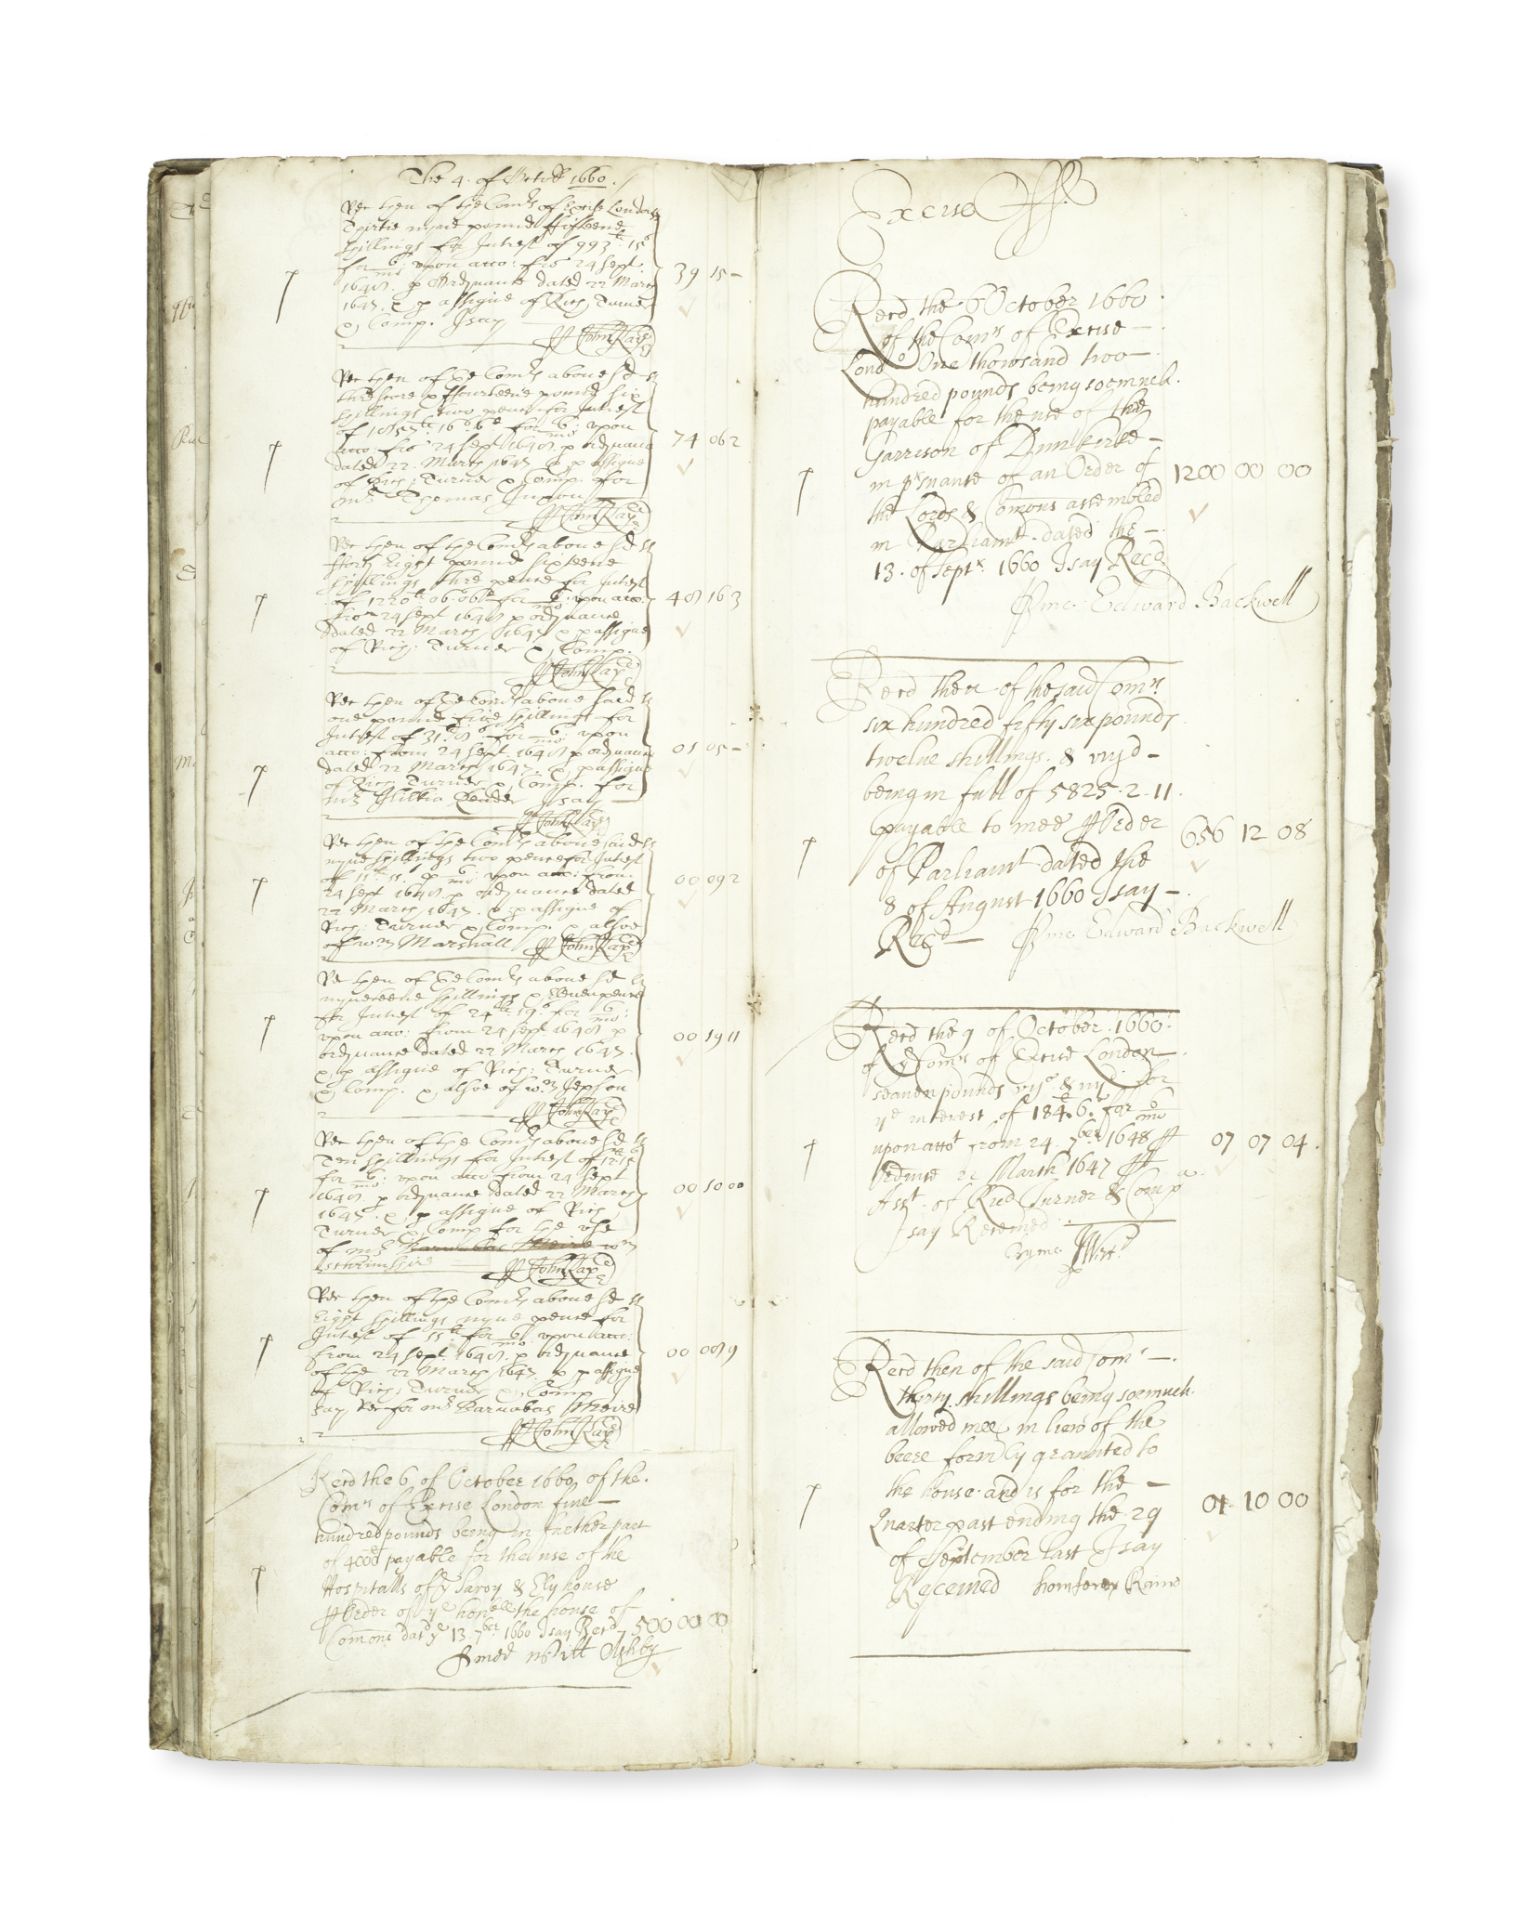 The 4. of Octob 1660.
Rec then of the Comrs of Excise London
Thirtie nyne pounds fifteene
shillings for Intrest of 993 15
for 6 mo upon acco: fro 24 Sept
1648. p Ordynance dated 22 March
1647. & p assigne of Rich: Turner
& Comp. I say
39 15 -
John Kaye
Rec then of the Comrs above sd
threscore & fourteene pounds six
shillings two pence for Intrest
of 1857 16 6 for 6 mo: upon
acco fro 24 Sept 1648. p ordynance
dated 22. March 1647 & p assigne
of Rich: Turner & Comp. for
mr Thomas
74 06 2
John Kaye
Rec then of the Comrs above sd
forty Eight pounds sixteene
shillings thre pence for Intrest
of 1220 06 06 for 6 mo: upon acco
from 24 Sept 1648 p ordynance
dated 22 March 1647 & p assigne
of Rich: Turner & Comp.
48 16 3
John Kaye
Rec then of the Comrs above said
one pound five shillings for
Intrest of 31 for 6 mo: upon
acco: from 24 Sept 1648 p ordynance
dated 22 March 1647. & p assigne
of Rich: Turner & Comp. for
mr I say
01 05 -
John Kaye
Rec then of the Comrs above said
nyne shillings two pence for Intrest
of 11 11 p 6 mo: upon acco: from
24 Sept 1648 p ordynance dated
22 March 1647. & p assigne of
Rich: Turner & Comp. & alsoe
of Wm Marshall John Kaye
00 09 2
Rec then of the Comrs above sd
nyneteene shillings & Elevenpence
for Intrest of 24 19 for 6 mo:
upon acco: from 24 Sept 1648 p
ordynance dated 22 March 1647.
& p assigne of Rich: Turner
& Comp. & alsoe of Wm Jepson
00 19 11
John Kaye
Rec then of the Comrs above sd
Ten shillings for Intrest of 12 15
for 6 mo: upon acco from 24 Sept
1648. p ordynance dated 22 March
1647. & p assigne of Rich:
Turner & Comp for the use
of mr
00 10 00
John Kaye
Rec then of the Comrs above sd
Eight shillings nyne pence for
Intrest of 11 for 6 mo upon acco:
from 24 Sept. 1648. p ordynance
of the 22 March 1647. & p assigne
of Rich: Turner & Comp I
say Rec for mr Barnabas Meire
00 08 9
John Kaye
Recd the 6 of October 1660 of the
Comrs of Excise London five
hundred pounds being in further part
of 4000 payable for the use of the
Hospitalls of ye Savoy & Ely house
p Order of ye honble the house of
Comons dat ye 13 7ber 1660 I say Recd 500 00 00
p mee Will Ashby
Excise
Recd the 6 October 1660
of the Comrs of Excise
Lond One thowsand two
hundred pounds being soemuch
payable for the use of the
Garrison of Dunkerke
in prsuance of an Order of
the Lords & Comons assembled
in Parliamt dated the
13. of Septr. 1660 I say Recd
1200 00 00
p me Edward Backwell
Recd then of the said Comrs
six hundred fifty six pounds
twelve shillings & viijd
being in full of 5825. 2. 11.
payable to mee p Order
of Parliamt dated the
8 of August 1660 I say
656 12 08
Recd p me Edward Backwell
Recd the 9 of October 1660
of ye Comrs of Excise London
seaven pounds vijs & iiijd for
ye interest of 184 6 for 6 mo
upon accot from 24. 7ber 1648 p
Ordince 22 March 1647 p
Asst. of Rid Turner & Comp a
I say Received
07 07 04.
Recd then of the said Comrs
thirty shillings being soemuch
allowed mee in liew of the
beere formrly graunted to
the house and is for the
Quarter past ending the 29
of September last I say
Received homferey Raine
01 10 00